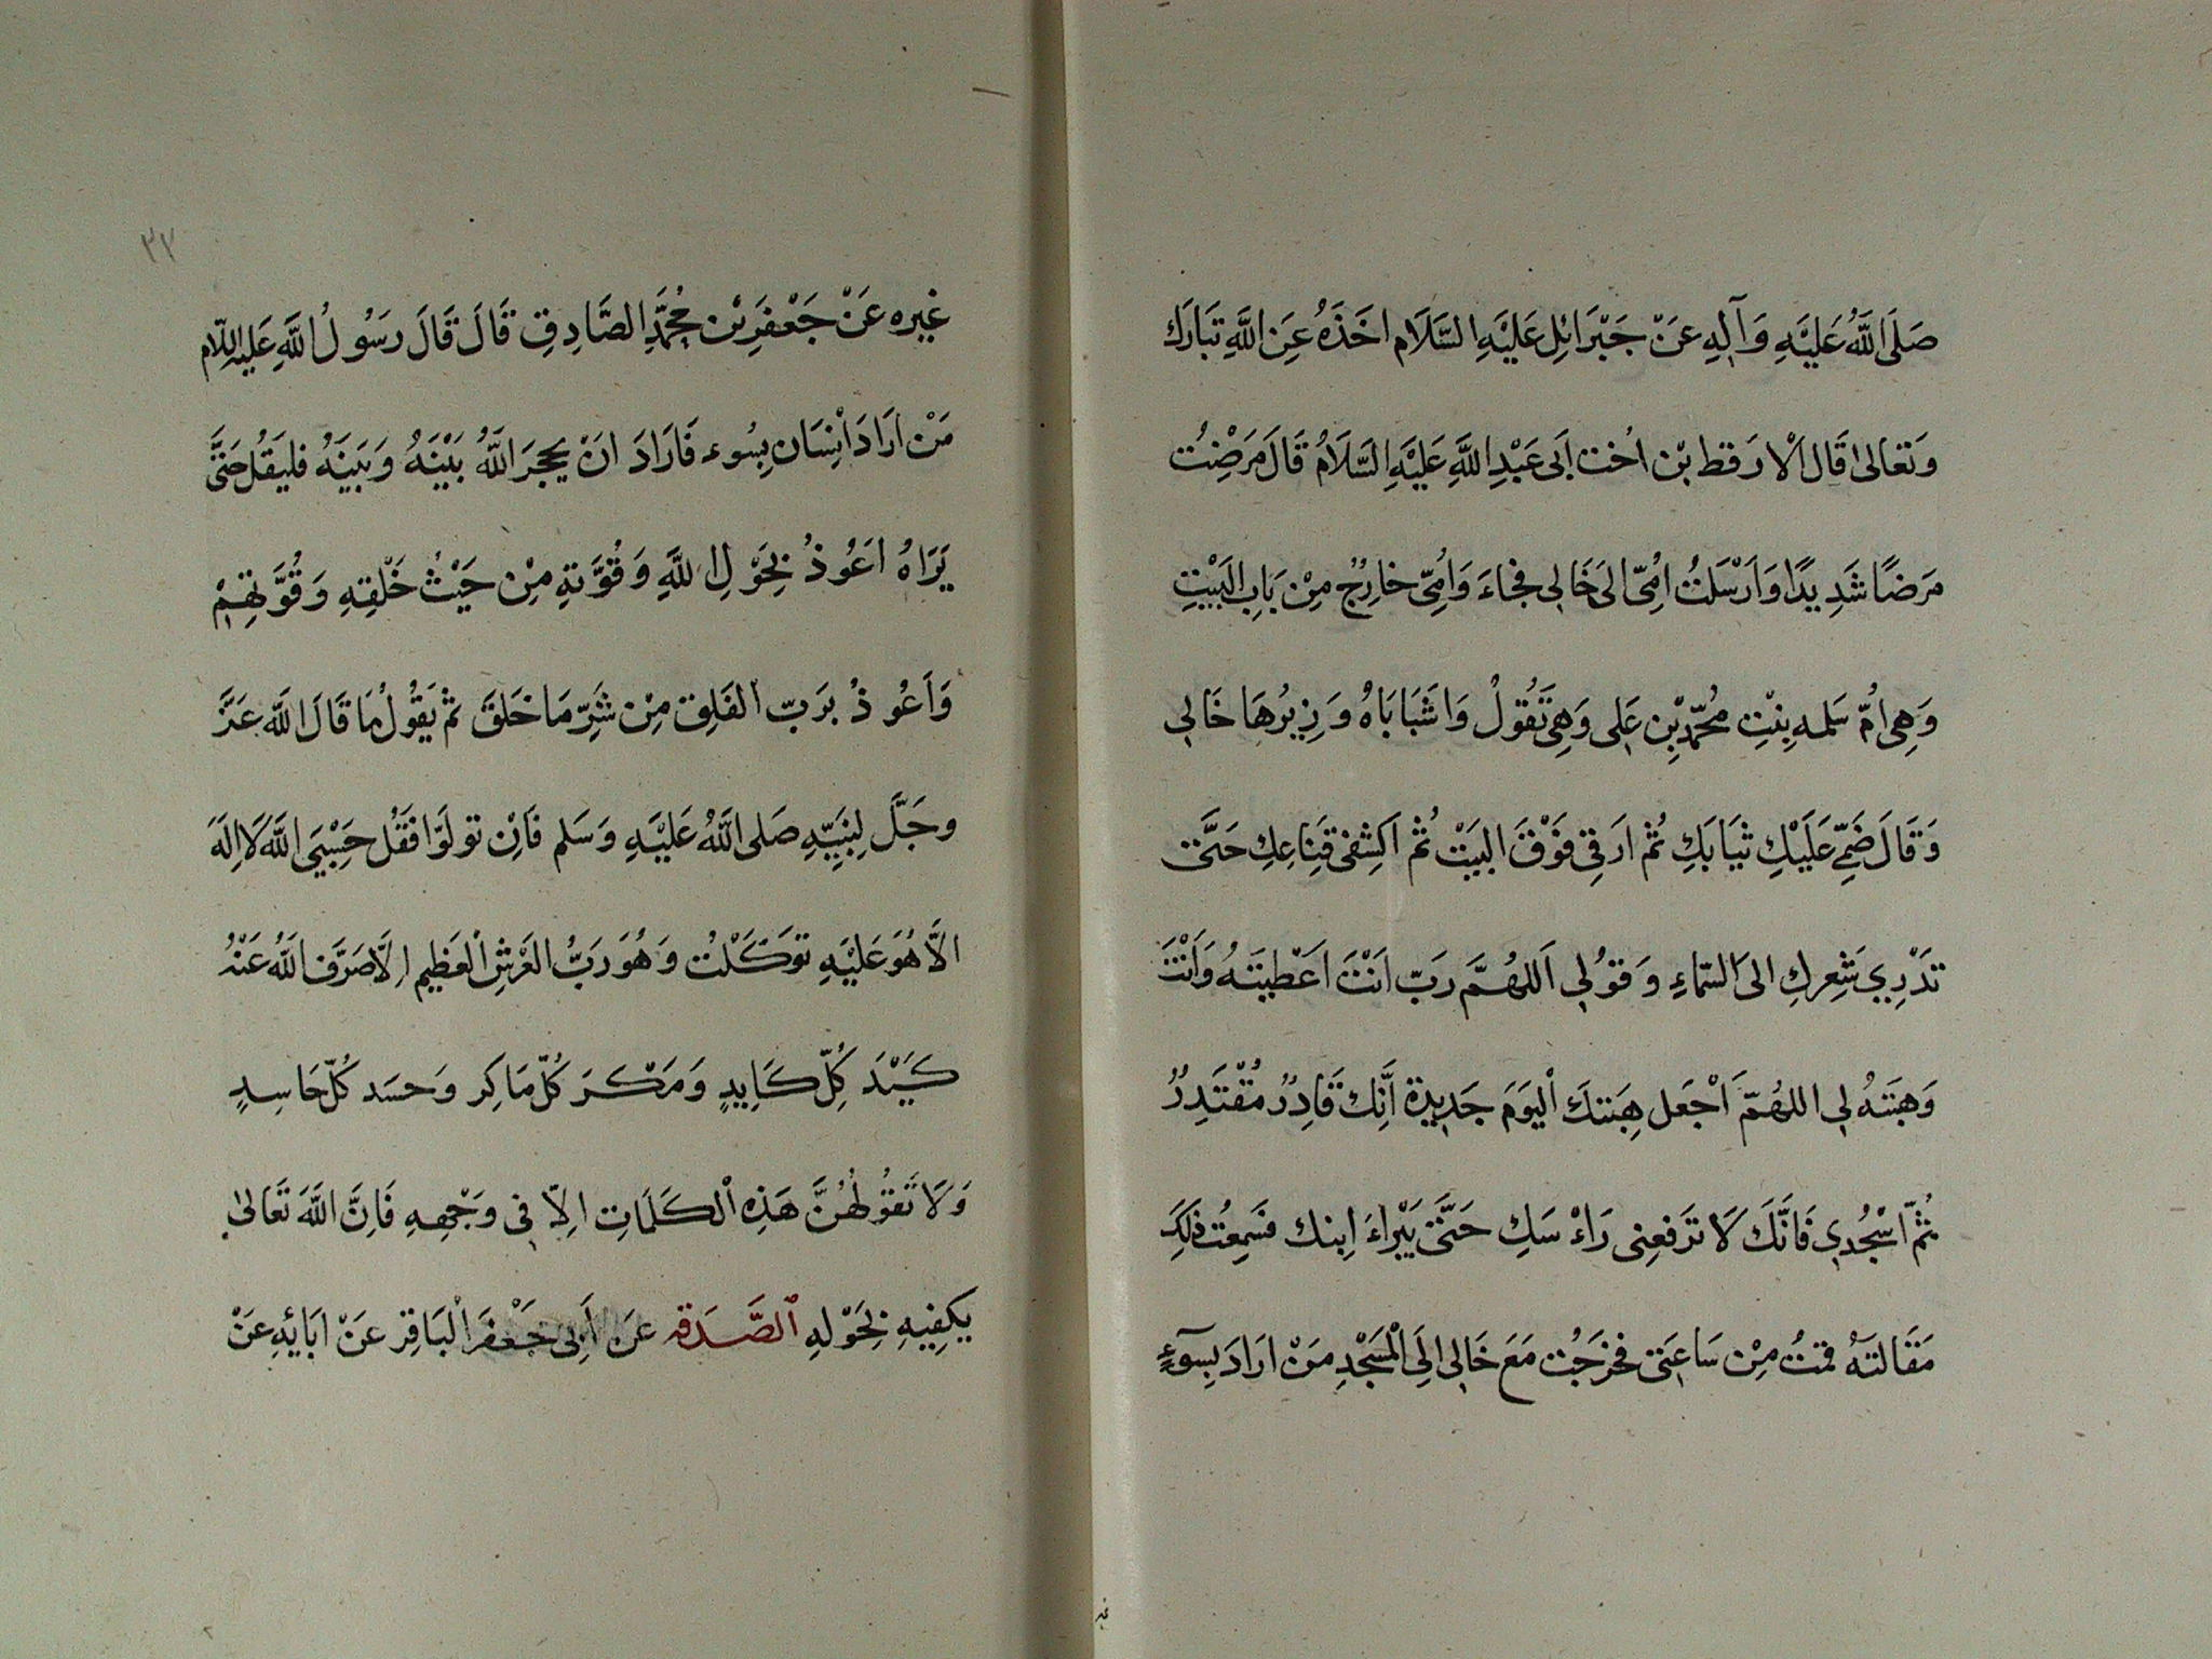 صَلَى اللَّهُ عَلَيْهِ وَآلِهِ عَنْ جَبْرَائِلِ عَلَيْهِ السَّلَام اخَذَهُ عَنِ اللَّهِ تَبَارَكَ
وَتَعَالىٰ قَالَ الْارَقط بْن اُخْت اَبى عَبْدِ اللَّهِ عَلَيْهِ السَّلَامُ قَالَ مَرَضْتُ
مَرَضًا شَدِيدًا وَاَرْسَلَتْ اُمّى الىَ خَالِى فجٰاءَ وَاُمِّى خارِجٌ مِنْ بَابِ الْبَيْتِ
وَهِىَ اُمّ سَلمه بِنْتِ مُحَمّدِبْنِ عَلِى وَهِىَ تَقُولُ وَاشَبَابَاهُ وَزِبرُهَا خَالِى
وَقَالَ ضَمِّى عَلَيْكِ ثيَابَكِ ثُمَّ ارَقِى فَوْقَ البَيْتِ ثُمّ اكشِفى قِنَاعِكِ حَتَّى
تدْرِي شَعِركِ الىَ السّماءِ وَقوُلِى اَللهُمَّ رَبّ اَنْتَ اَعْطيتَهُ وَاَنْتَ
وَهبَتهُ لِى اللهُمّ اَجْعَل هِبَتكَ الْيوَمَ جَدِيدة اَنِّكَ قَادِرٌ مُقْتَدِرٌ
ثُمّ اسْجُدِى فَانَّكَ لَا تَرفعِنى رَاءْ سَكِ حَتَّى يَبْراءَ اِبنك فسَمِعْت ذٰلِكَ
مَقَالتَهُ قمتُ مِنْ سَاعتَى فخرَجْت مَعَ خَالِى اِلَى الْمَسْجِدِ مَنْ ارَادَ بِسوٓءٍ
٣٢
غيره عَنْ جَعْفَرِبْن مُحَمَّدِ الصَّادِقِ قَالَ قَالَ رَسُولُ اللَّهِ عَليهِ السّلام
مَنْ ارَادَ اَنْسَان بِسُوء فَارَادَ انْ يحجرَ اللَّهُ بَيْنَهُ وَبَيَنهُ فليَقُلْ حَتىَّ
يَرَاهُ اعَوُذُ بِحَوْلِ اللَّهِ وَقُوَّتهِ مِنْ حَيْثُ خَلْقِهِ وَقُوَّتِهِمْ
وَاَعوُذُ برَبّ الْفَلِق مِنْ شَرِّ مَا خَلَقَ ثُمّ يَقُولُ مَا قَالَ اللّه عَزَّ
وجَلَّ لِنَبِيِّهِ صَلى اللَّهُ عَلَيْهِ وَسَلم فَاِنْ توَلَوّا فَقُلْ حَسْبِىَ اللَّهُ لَا اِلٰهَ
الاَّ هُوَ عَلَيْهِ توَكَّلْت وَهُوَ رَبُّ الْعَرْشِ الْعَظِيم اِلَّا صَرَّف اللَّهُ عَنْهُ
كَيْدَ كُلِّ كَايِدٍ وَمَكْرَ كُلّ مَاكِر وَحسَد كُلّ حَاسِدٍ
وَلَا تَقوُلهُنَّ هَذِه الْكَلَمَاتِ اِلاّ فِى وَجْهِهِ فَاِنَّ اللَّهَ تَعَالىٰ
يكفِيهِ بِحَوْلهِ الصَّدَقه عَن اَبِى جَعْفَر الْبَاقِر عَنْ ابَائِهِ عَنْ